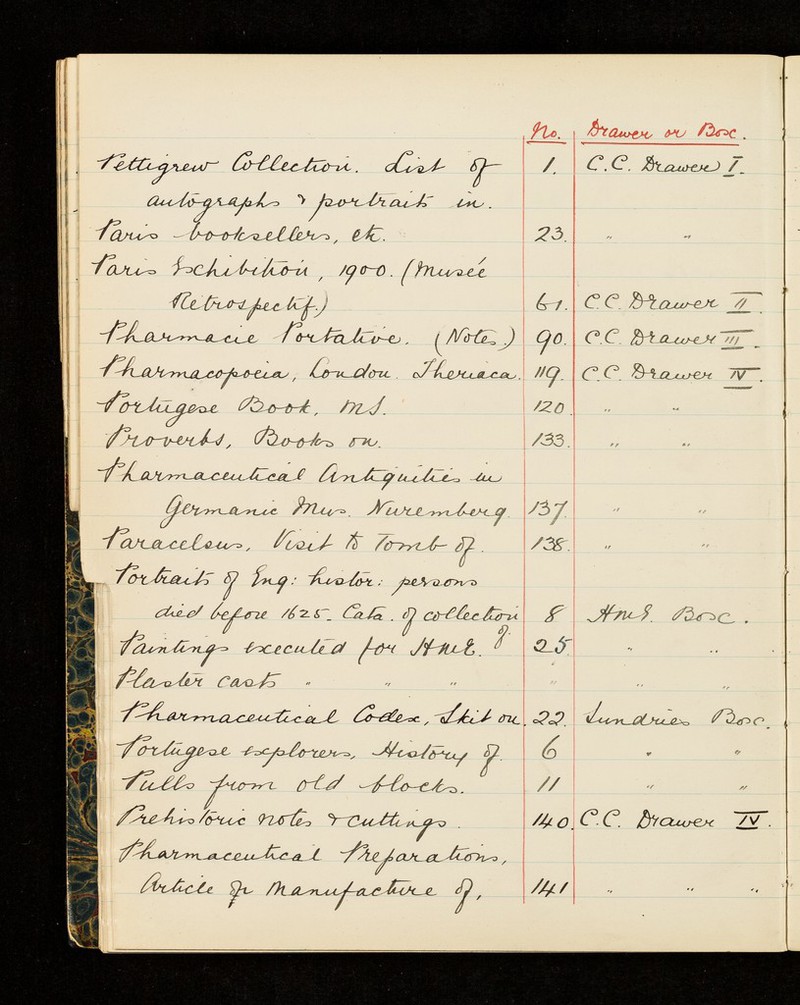 No. Drawer or Box.
Pettigrew Collection. List of 1. C.C. Drawer I.
autographs & portraits in.
Paris booksellers, etc. 23. " "
Paris Exhibition, 1900. (Museé
Retrospectif.) 61. C.C. Drawer II.
Pharmacie Portative. (Notes.) 90. C.C. Drawer III.
Pharmacopoeia, London. Theriaca. 119. C.C. Drawer IV.
Portugese Book, MS. 120 " "
Proverbs, Books on. 133. " "
Pharmaceutical Antiquities in
Germanic Mus. Nuremberg. 137. " "
Paracelsus, Visit to Tomb of. 138. " "
Portraits of Eng: histor: persons
died before 1625. Cata. of collection of. 8 H.M.E. Box.
Paintings executed for H.M.E. 25 " "
Plaster casts " " " " " "
Pharmaceutical Codex, Skit on. 22. Sundries Box.
Portugese explorers, History of. 6 " "
Pulls from old blocks. 11 " "
Prehistoric notes & cuttings. 140. C.C. Drawer IV.
Pharmaceutical Preparations,
Article on Manufacture of, 141 " " "